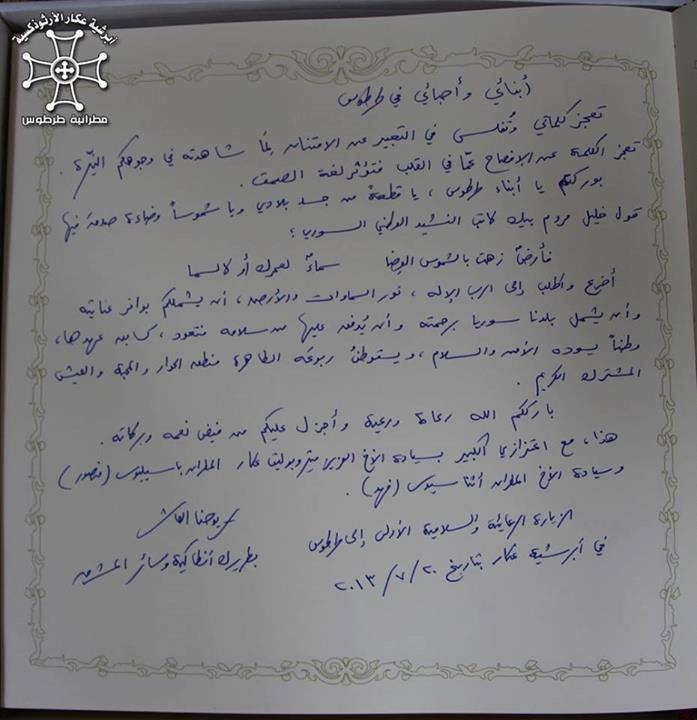 أبرشية عكار الأرثوذكسية
مطرانية طرطوس
أبنائي وأحبائي في طرطوس
تعجز كلماتي وتُفلس في التعبير عن الامتنان لِمَا شاهدته في وجوهكم النيّرة.
تعجز الكلمة عن الإفصاح عمّا في القلب فتؤثر لغة الصمت.
بوركتم يا أبناء طرطوس، يا قطعةً من جسد بلادي ويا شموساً وضاءة صدق فيها
قول خليل مردم بيك كاتب النشيد الوطني السوري:
فأرضٌ زهت بالشموس الوضا سماءٌ لعمرك أو كالسما
أضرع وأطلب إلى الرب الإله، نور السماوات والأرض، أن يشملكم بوافر عنايته
وأن يشمل بلدنا سوريا برحمته وأن يُدفق عليها من سلامه فتعود، كسابق عهدها،
وطناً يسوده الأمن والسلام، ويستوطنُ ربوعَه الطاهرة منطق الحوار والمحبة والعيش
المشترك الكريم.
بارككم الله رعاة ورعية وأجزل عليكم من فيض نعمه وبركاته.
هذا، مع اعتزازي الكبير بسيادة الأخ العزيز ميتروبوليت عكار المطران باسيليوس (منصور)
وسيادة الأخ المطران أثناسيوس (فهد).
يوحنا العاشر
بطريرك أنطاكية وسائر المشرق
الزيارة الرعائية والسلامية الأولى إلى طرطوس
في أبرشية عكار بتاريخ ٢٠/٧/٢٠١٣